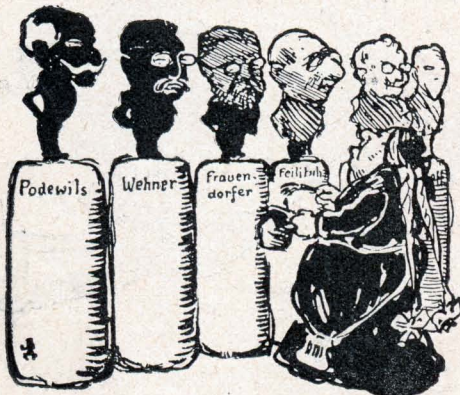 Podewils
Wehner
Frauen-
dorfer
Feilitzsch